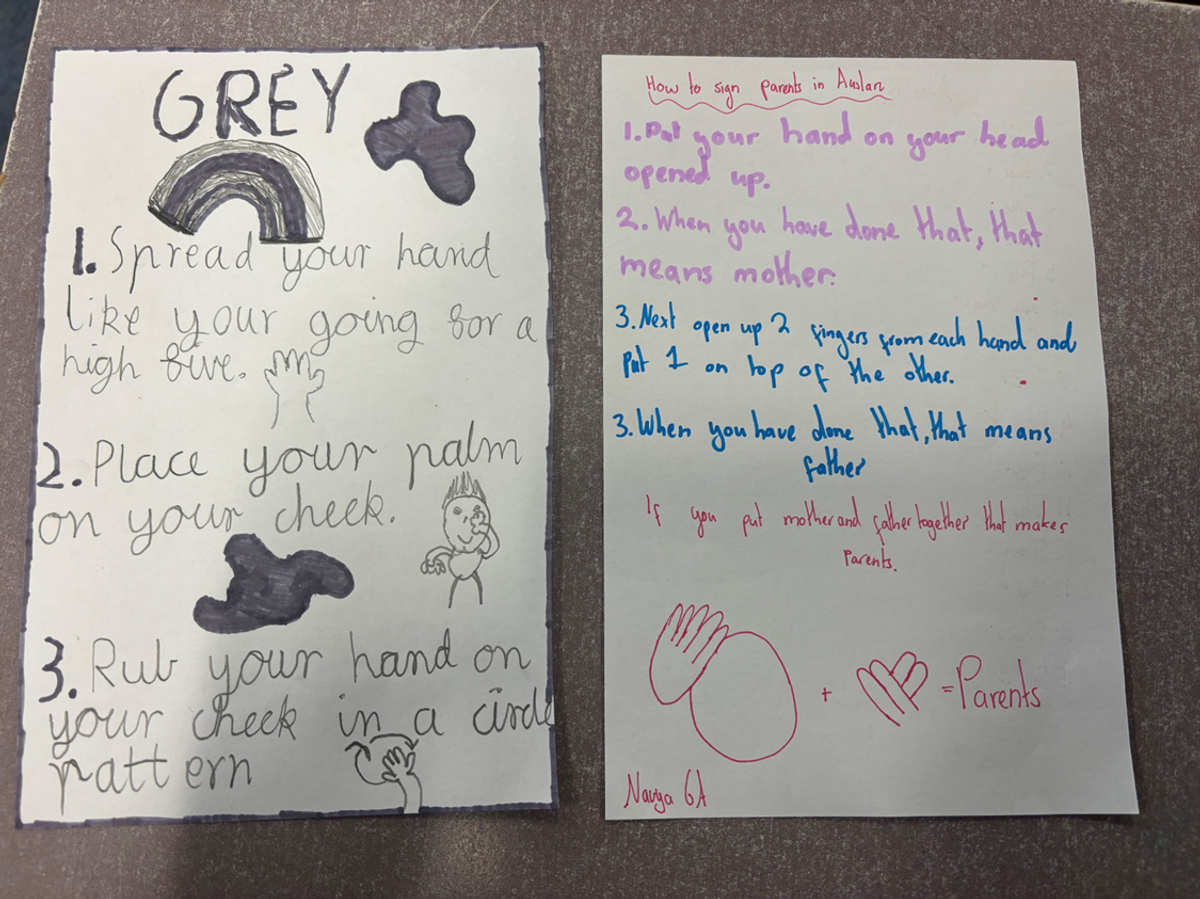 GREY
1. Spread your hand
like your going for a
high five.
2. Place your palm
on your cheek.
3. Rub your hand on
your cheek in a circle
pattern
How to sign parents in Auslan
1. Put your hand on your head
opened up.
2. When you have done that, that
means mother.
3. Next open up 2 fingers from each hand and
put 1 on top of the other.
3. When you have done that, that means
father
If you put mother and father together that makes
Parents.
+ = Parents
Navya 6A